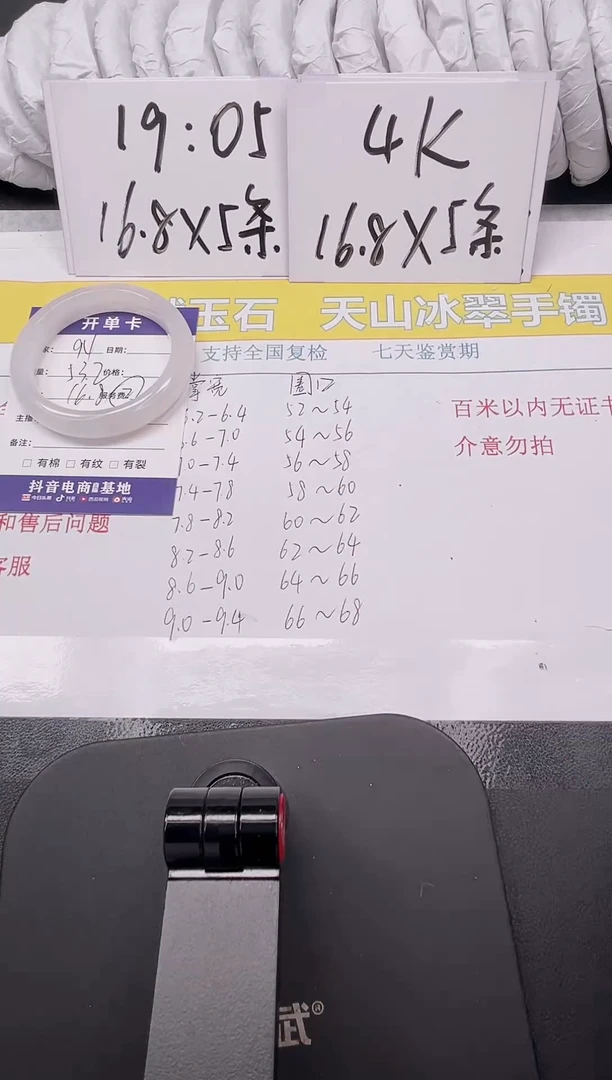 19:05
16.8X5条
4K
16.8X5条
玉石 天山冰翠手镯
支持全国复检 七天鉴赏期
开单卡
日期:
53.2 价格:
16.8 服务费
备注:
有棉 有纹 有裂
抖音电商 基地
掌宽 圈口
6.2-6.4 52~54
6.6-7.0 54~56
7.0-7.4 56~58
7.4-7.8 58~60
7.8-8.2 60~62
8.2-8.6 62~64
8.6-9.0 64~66
9.0-9.4 66~68
百米以内无证书
介意勿拍
和售后问题
客服
武®